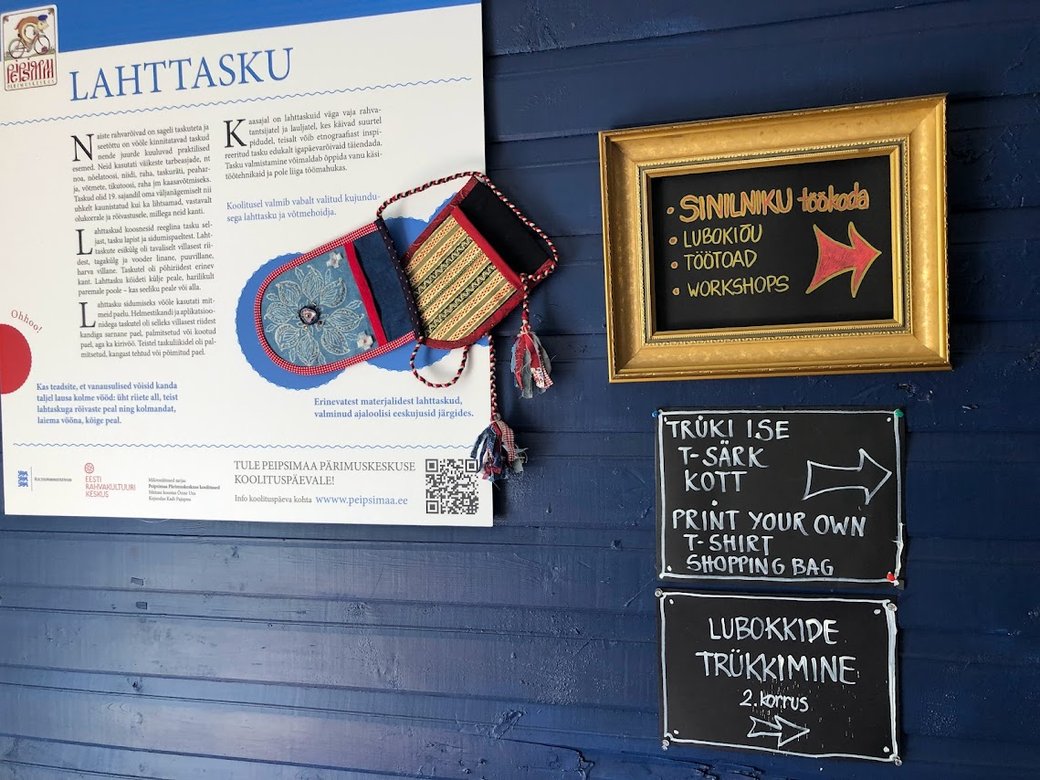 PEIPSIMAA
PÄRIMUSKESKUS
LAHTTASKU
Naiste rahvarõivad on sageli taskuteta ja
seetõttu on vööle kinnitatavad taskud
nende juurde kuuluvad praktilised
esemed. Neid kasutati väikeste tarbeasjade, nt
noa, nõelatoosi, niidi, raha, taskuräti, peahar-
ja, võtmete, tikutoosi, raha jm kaasavõtmiseks.
Taskud olid 19. sajandil oma väljanägemiselt nii
uhkelt kaunistatud kui ka lihtsamad, vastavalt
olukorrale ja rõivastusele, millega neid kanti.
Lahttaskud koosnesid reeglina tasku sel-
jast, tasku lapist ja sidumispaeltest. Laht-
taskute esikülg oli tavaliselt villasest rii-
dest, tagakülg ja vooder linane, puuvillane,
harva villane. Taskutel oli põhiriidest erinev
kant. Lahttasku kõideti külje peale, harilikult
paremale poole – kas seeliku peale või alla.
Lahttasku sidumiseks vööle kasutati mit-
meid paelu. Helmestikandi ja aplikatsioo-
nidega taskutel oli selleks villasest riidest
kandiga sarnane pael, palmitsetud või kootud
pael, aga ka kirivöö. Teistel taskuliikidel oli pal-
mitsetud, kangast tehtud või põimitud pael.
Kaasajal on lahttaskuid väga vaja rahva-
tantsijatel ja lauljatel, kes käivad suurtel
pidudel, teisalt võib etnograafiast inspi-
reeritud tasku edukalt igapäevarõivaid täiendada.
Tasku valmistamine võimaldab õppida vanu käsi-
töötehnikaid ja pole liiga töömahukas.
Koolitusel valmib vabalt valitud kujundu-
sega lahttasku ja võtmehoidja.
Ohhoo!
Kas teadsite, et vanausulised võisid kanda
taljel lausa kolme vööd: üht riiete all, teist
lahttaskuga rõivaste peal ning kolmandat,
laiema vööna, kõige peal.
Erinevatest materjalidest lahttaskud,
valminud ajaloolisi eeskujusid järgides.
EESTI
RAHVAKULTUURI
KESKUS
Peipsimaa Pärimuskeskus koolitused
TULE PEIPSIMAA PÄRIMUSKESKUSE
KOOLITUSPÄEVALE!
Info koolituspäeva kohta www.peipsimaa.ee
• SINILNIKU töökoda
• LUBOKIÕU
• TÖÖTOAD
• WORKSHOPS
TRÜKI ISE
T-SÄRK
KOTT
•
PRINT YOUR OWN
T-SHIRT
SHOPPING BAG
LUBOKKIDE
TRÜKKIMINE
2. korrus